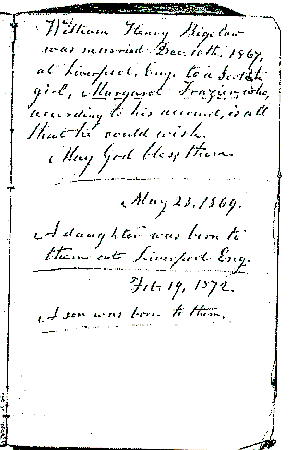 William Henry Bigelow
was married Dec. 10th, 1867,
at Liverpool, Eng. to a Scotch
girl, Margaret Frazier, who,
according to his account, is all
that he could wish.
May God bless them
May 23, 1869.
A daughter was born to
them at Liverpool Eng.
Feb 19, 1872.
A son was born to them.